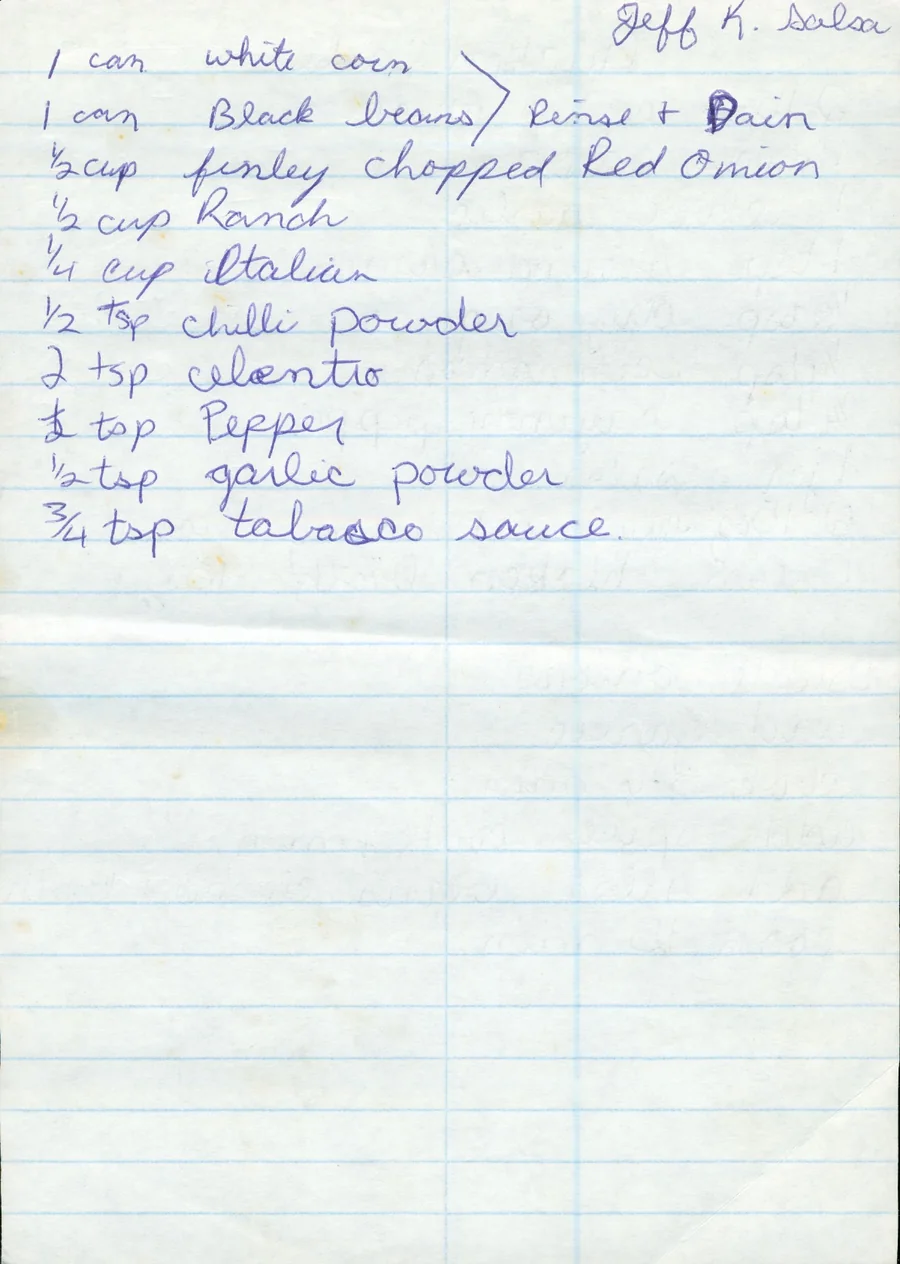 Jeff K. Salsa
1 can white corn
1 can Black beans > Rinse + Dain
1/2 cup finley chopped Red Onion
1/2 cup Ranch
1/4 cup Italian
1/2 tsp chilli powder
2 tsp celantro
tsp Pepper
1/2 tsp garlic powder
3/4 tsp tabasco sauce.